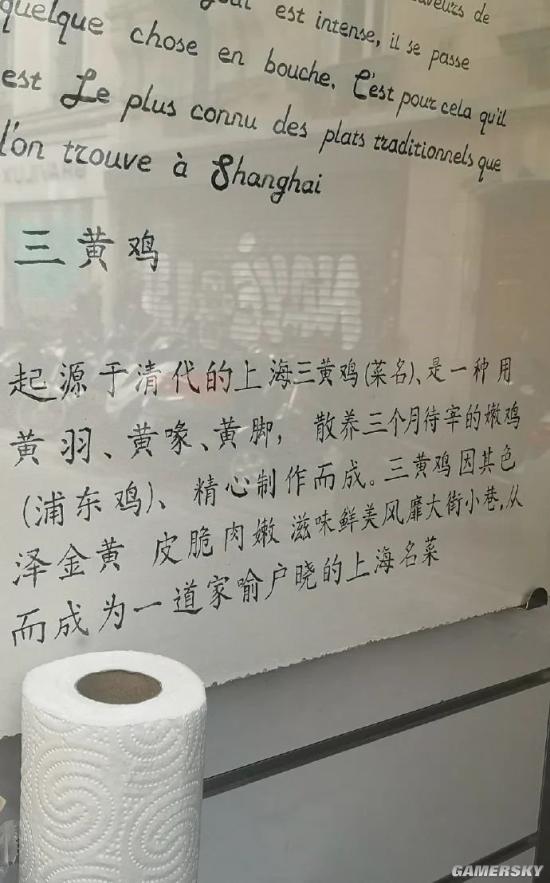 goût est intense, il se passe
quelque chose en bouche. C'est pour cela qu'il
est Le plus connu des plats traditionnels que
l'on trouve à Shanghai
三黄鸡
起源于清代的上海三黄鸡(菜名)、是一种用
黄羽、黄喙、黄脚，散养三个月待宰的嫩鸡
(浦东鸡)、精心制作而成。三黄鸡因其色
泽金黄 皮脆肉嫩 滋味鲜美风靡大街小巷,从
而成为一道家喻户晓的上海名菜
GAMERSKY